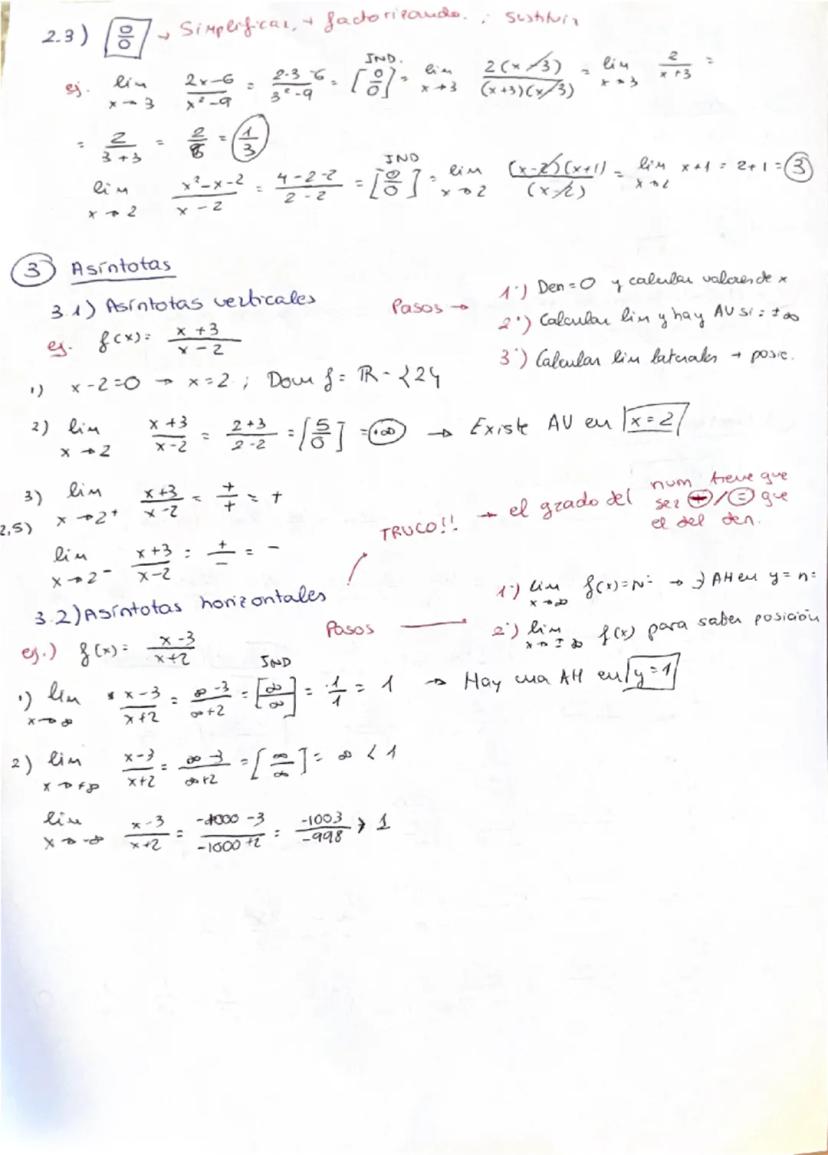 2.3) [0/0] → Simplificar, → factorizando. ; sustituir
ej. lim x→3 2x-6/x²-9 = 2·3-6/3²-9 = [0/0] IND. = lim x→3 2(x-3)/(x+3)(x-3) = lim x→3 2/x+3 =
= 2/3+3 = 2/6 = 1/3
lim x→2 x²-x-2/x-2 = 4-2-2/2-2 = [0/0] IND = lim x→2 (x-2)(x+1)/(x-2) = lim x→2 x+1 = 2+1 = 3
3 Asíntotas
3.1) Asíntotas verticales
Pasos →
1º) Den=0 y calcular valores de x
2º) Calcular lim y hay AV si = ±∞
3º) Calcular lim laterales → posic.
ej. f(x) = x+3/x-2
1) x-2=0 → x=2 ; Dom f = R - {2}
2) lim x→2 x+3/x-2 = 2+3/2-2 = [5/0] = ∞ → Existe AV en x=2
3) lim x→2⁺ x+3/x-2 = +/+ = +
2,5)
lim x→2⁻ x+3/x-2 = +/- = -
TRUCO!! → el grado del num tiene que
ser -/= que
el del den.
3.2) Asíntotas horizontales
Pasos
1º) lim x→∞ f(x)=Nº → ∃ AH en y=nº
2º) lim x→±∞ f(x) para saber posición
ej.) f(x) = x-3/x+2
1) lim x→∞ x-3/x+2 = ∞-3/∞+2 = [∞/∞] IND = 1/1 = 1 → Hay una AH en y=1
2) lim x→+∞ x-3/x+2 = ∞-3/∞+2 = [∞/∞] = ∞ < 1
lim x→-∞ x-3/x+2 = -1000-3/-1000+2 = -1003/-998 > 1